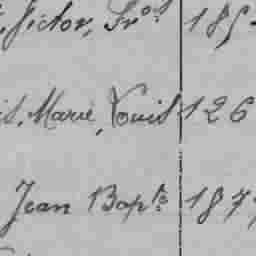 Victor, Frçs 185
Marie, Louis 126
Jean Bapte 187